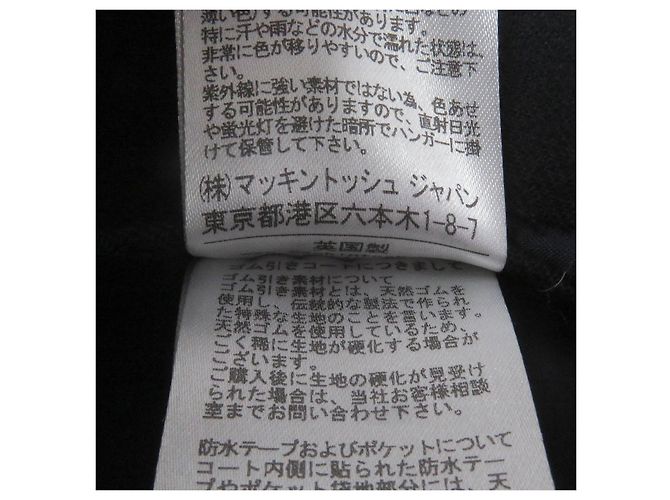 薄い色)する可能性があります。
特に汗や雨などの水分で濡れた状態は、
非常に色が移りやすいので、ご注意下
さい。
紫外線に強い素材ではない為、色あせ
する可能性がありますので、直射日光
や蛍光灯を避けた暗所でハンガーに掛
けて保管して下さい。
(株)マッキントッシュ ジャパン
東京都港区六本木1-8-7
英国製
ゴム引きコートにつきまして
ゴム引き素材について
ゴム引き素材とは、天然ゴムを
使用し、伝統的な製法で作られ
た特殊な生地のことを言います。
天然ゴムを使用しているため、
ごく稀に生地が硬化する場合が
ございます。
ご購入後に生地の硬化が見受け
られた場合は、当社お客様相談
室までお問い合わせ下さい。
防水テープおよびポケットについて
コート内側に貼られた防水テー
プやポケット袋地部分には、天